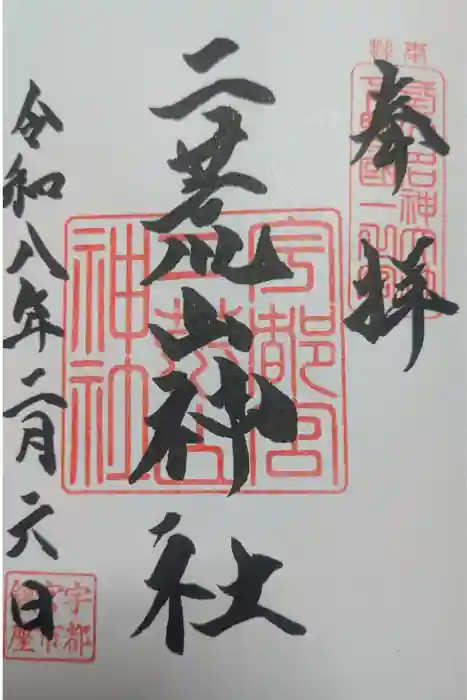 奉拝
下野國一之宮
二荒山神社
宇都宮
二荒山
神社
令和八年二月六日
宇都
宮市
鎮座